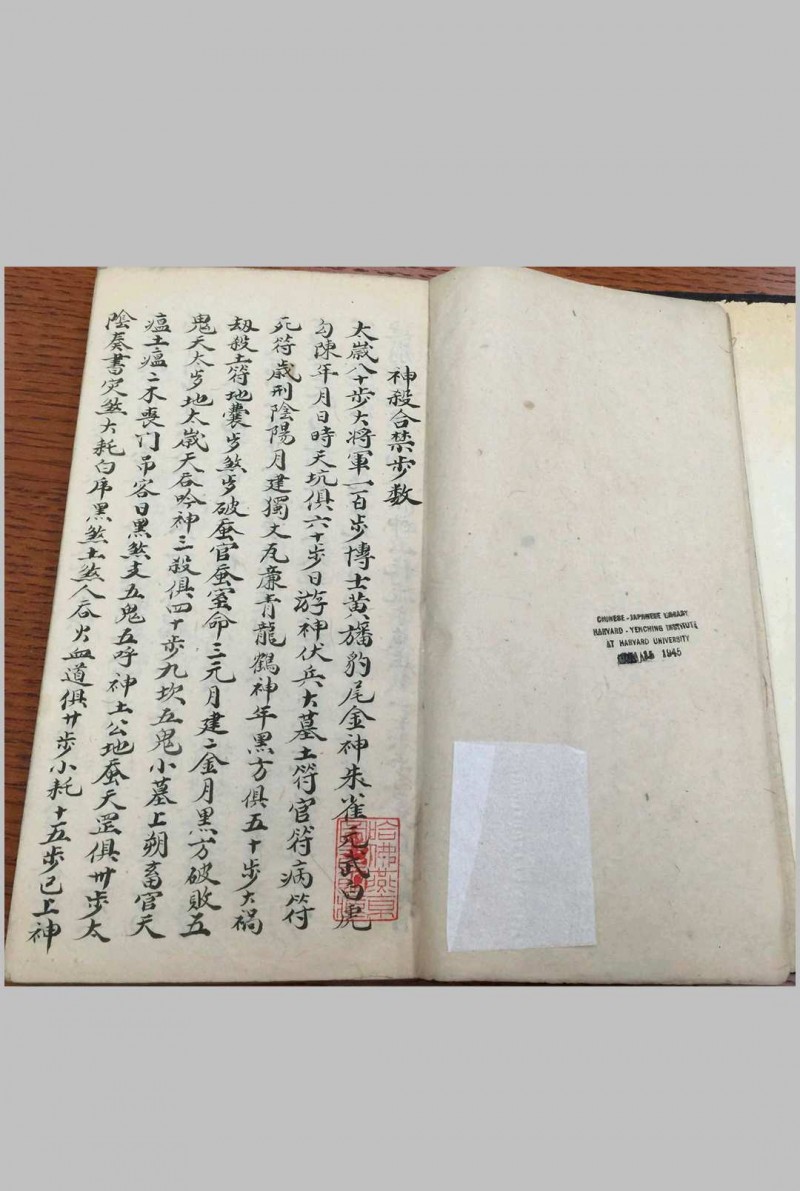 神殺合禁步数
太嵗八十步大将軍一百步博士黄旛豹尾金神朱雀元武白虎
勾陳年月日時天坑俱六十步日游神伏兵大墓土符官符病符
死符嵗刑陰陽月建獨火瓦㢘青龍鶴神年黑方俱五十步大禍
刼殺土符地囊步煞步破蚕官蚕室命三元月建二金月黑方破敗五
鬼天太步地太嵗天吞吟神三殺俱四十步九坎五鬼小墓上朔畜官天
瘟土瘟二木喪门吊客日黑煞支五鬼五呼神土公地蚕天罡俱卅步太
陰奏書灾煞大耗白虎黑煞土煞人吞火血道俱廿步小耗十五步已上神
CHINESE-JAPANESE LIBRARY
HARVARD-YENCHING INSTITUTE
AT HARVARD UNIVERSITY
1945
哈佛燕京